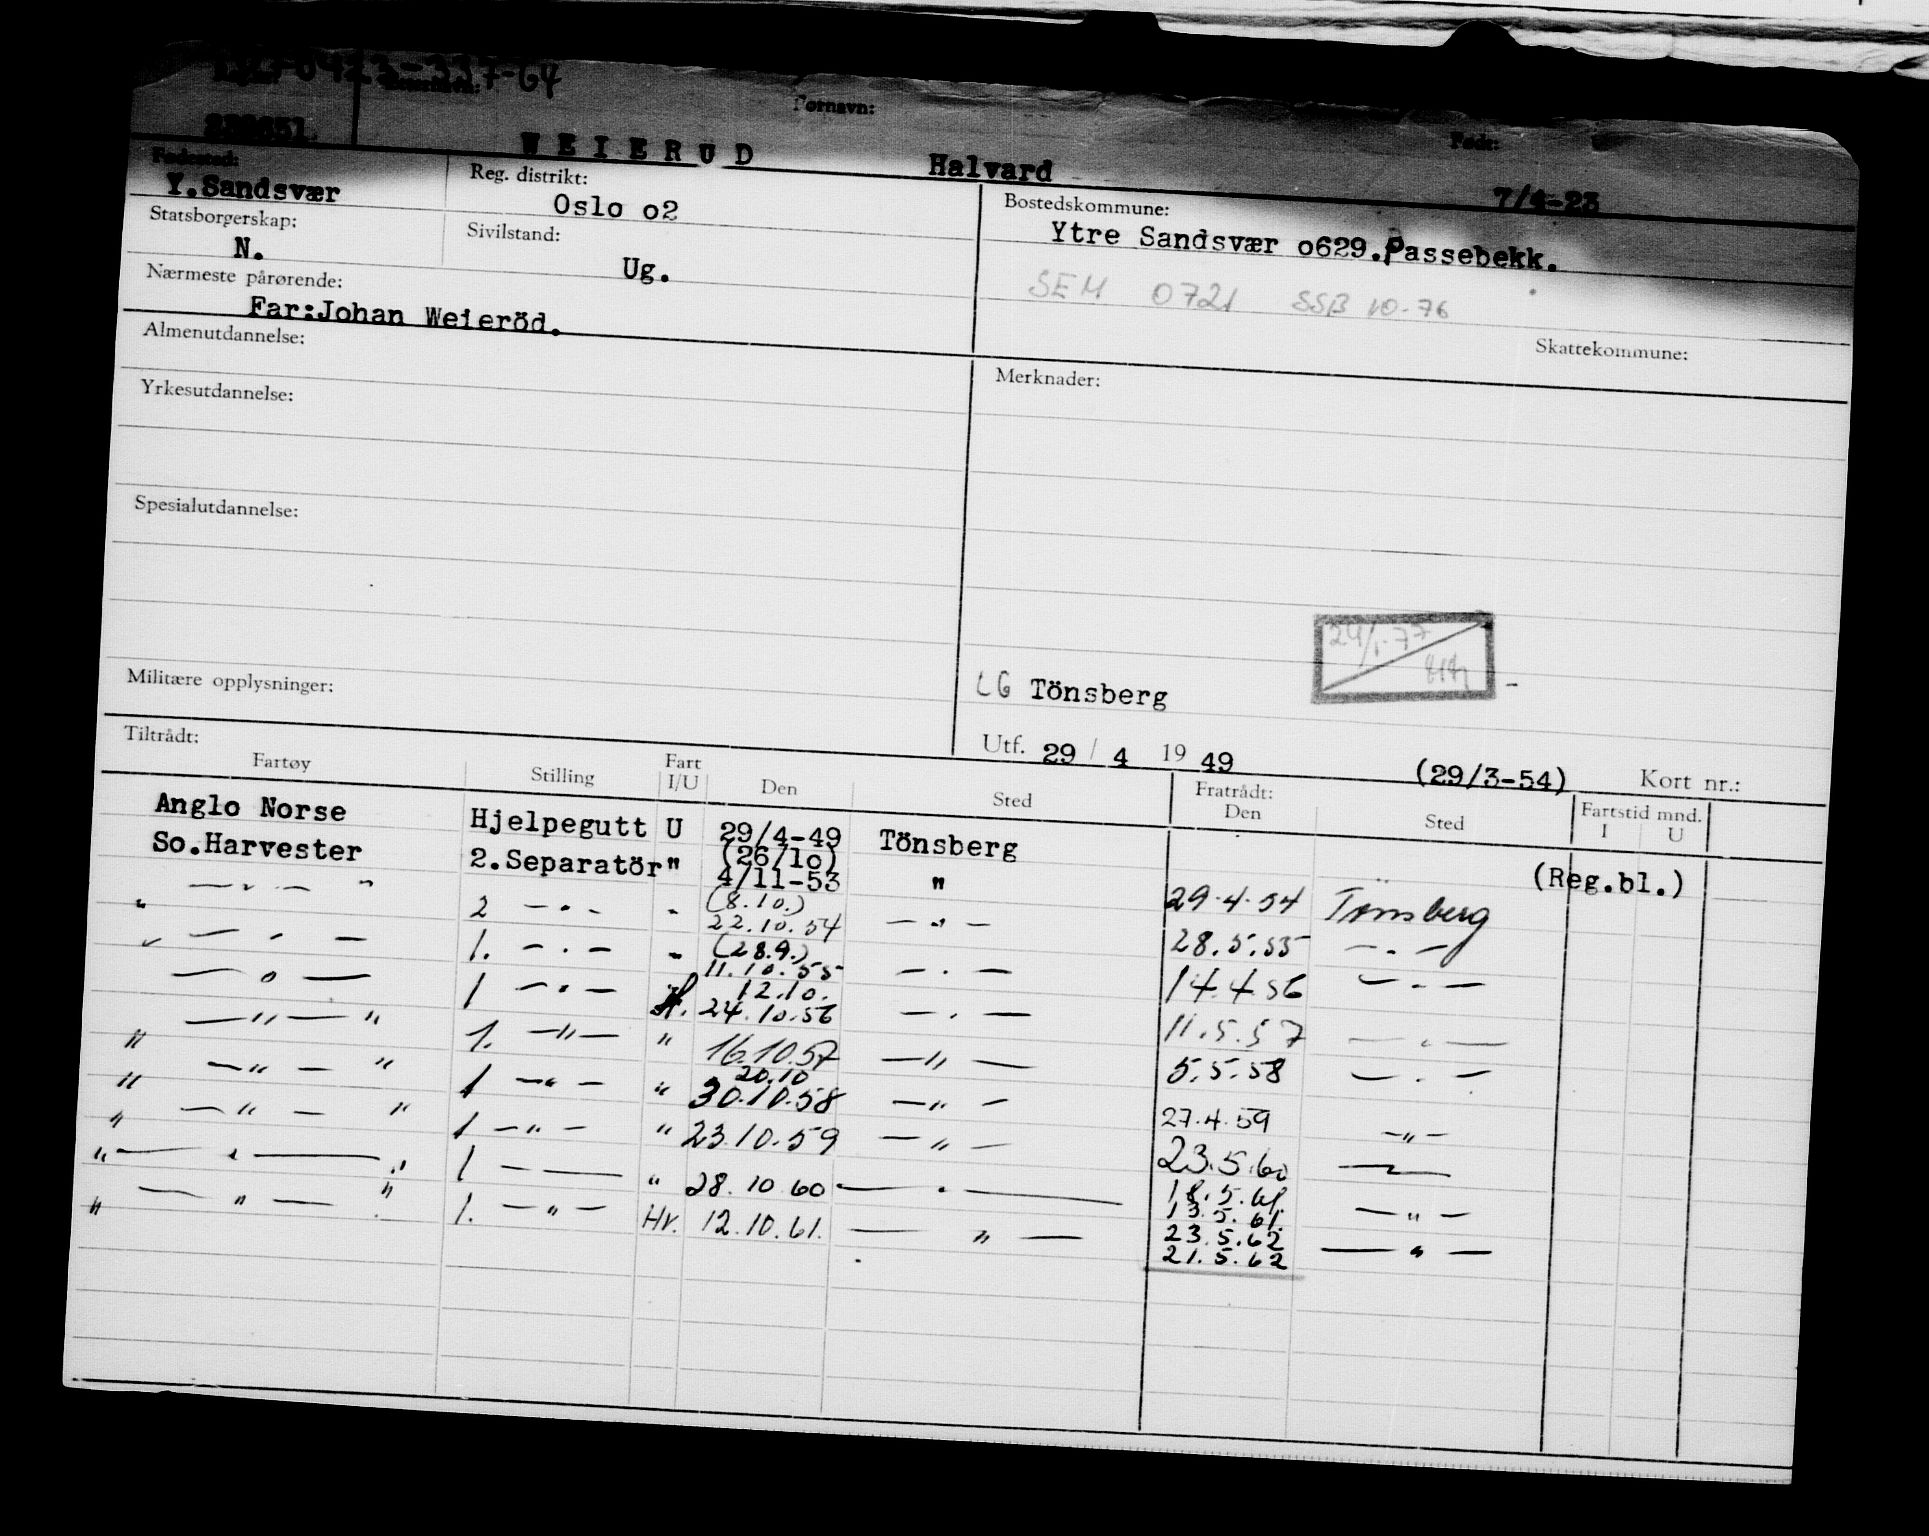 Fornavn: Født:
WEIERUD Halvard 7/4-23
Fødested: Reg. distrikt: Bostedskommune:
Y.Sandsvær Oslo o2 Ytre Sandsvær o629.Passebekk.
Statsborgerskap: Sivilstand:
N. Ug.
SEM 0721 SSB 10-76
Nærmeste pårørende:
Far:Johan Weieröd.
Skattekommune:
Almenutdannelse: Merknader:
Yrkesutdannelse:
Spesialutdannelse:
24/1-77
Militære opplysninger: LG Tönsberg
Utf. 29 / 4 19 49 (29/3-54) Kort nr.:
Tiltrådt: Fratrådt: Fartstid mnd.
Fartøy Stilling Fart I/U Den Sted Den Sted I U
Anglo Norse Hjelpegutt U 29/4-49 Tönsberg (Reg.bl.)
So.Harvester 2.Separatör " (26/10) 4/11-53 " 29.4.54 Tønsberg
" — " — " 2 — " — " (8.10.) 22.10.54 — " — 28.5.55 — " —
" — " — 1. — " — " (28.9.) 11.10.55 — " — 14.4.56 — " —
— " — 1 — " — 12.10. 24.10.56 — " — 11.5.57 — " —
— " — " 1. — " — " 16.10.57 — " — 5.5.58 — " —
" — " — " 1 — " — " 20.10 30.10.58 — " — 27.4.59 — " —
" — " — " 1 — " — " 23.10.59 — " — 23.5.60 — " —
" — " — " 1 — — " 28.10.60 — " — 18.5.61. 13.5.61. — " —
" — " — " 1. — " — Hv. 12.10.61. — " — 23.5.62 21.5.62 — " —